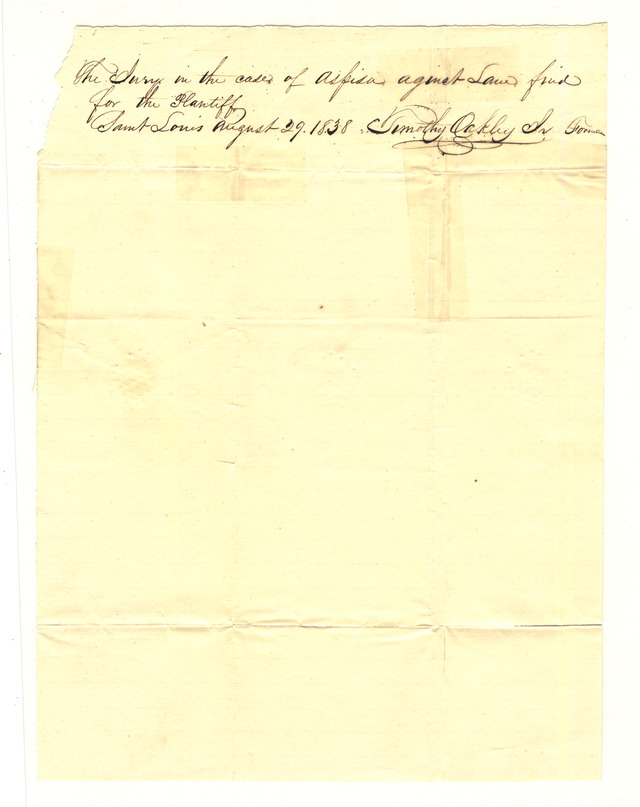 The Jury in the case of Aspisa aginst Lane find
for the Plantiff
Saint Louis August 29. 1838. Timothy Oakley Jr Forman